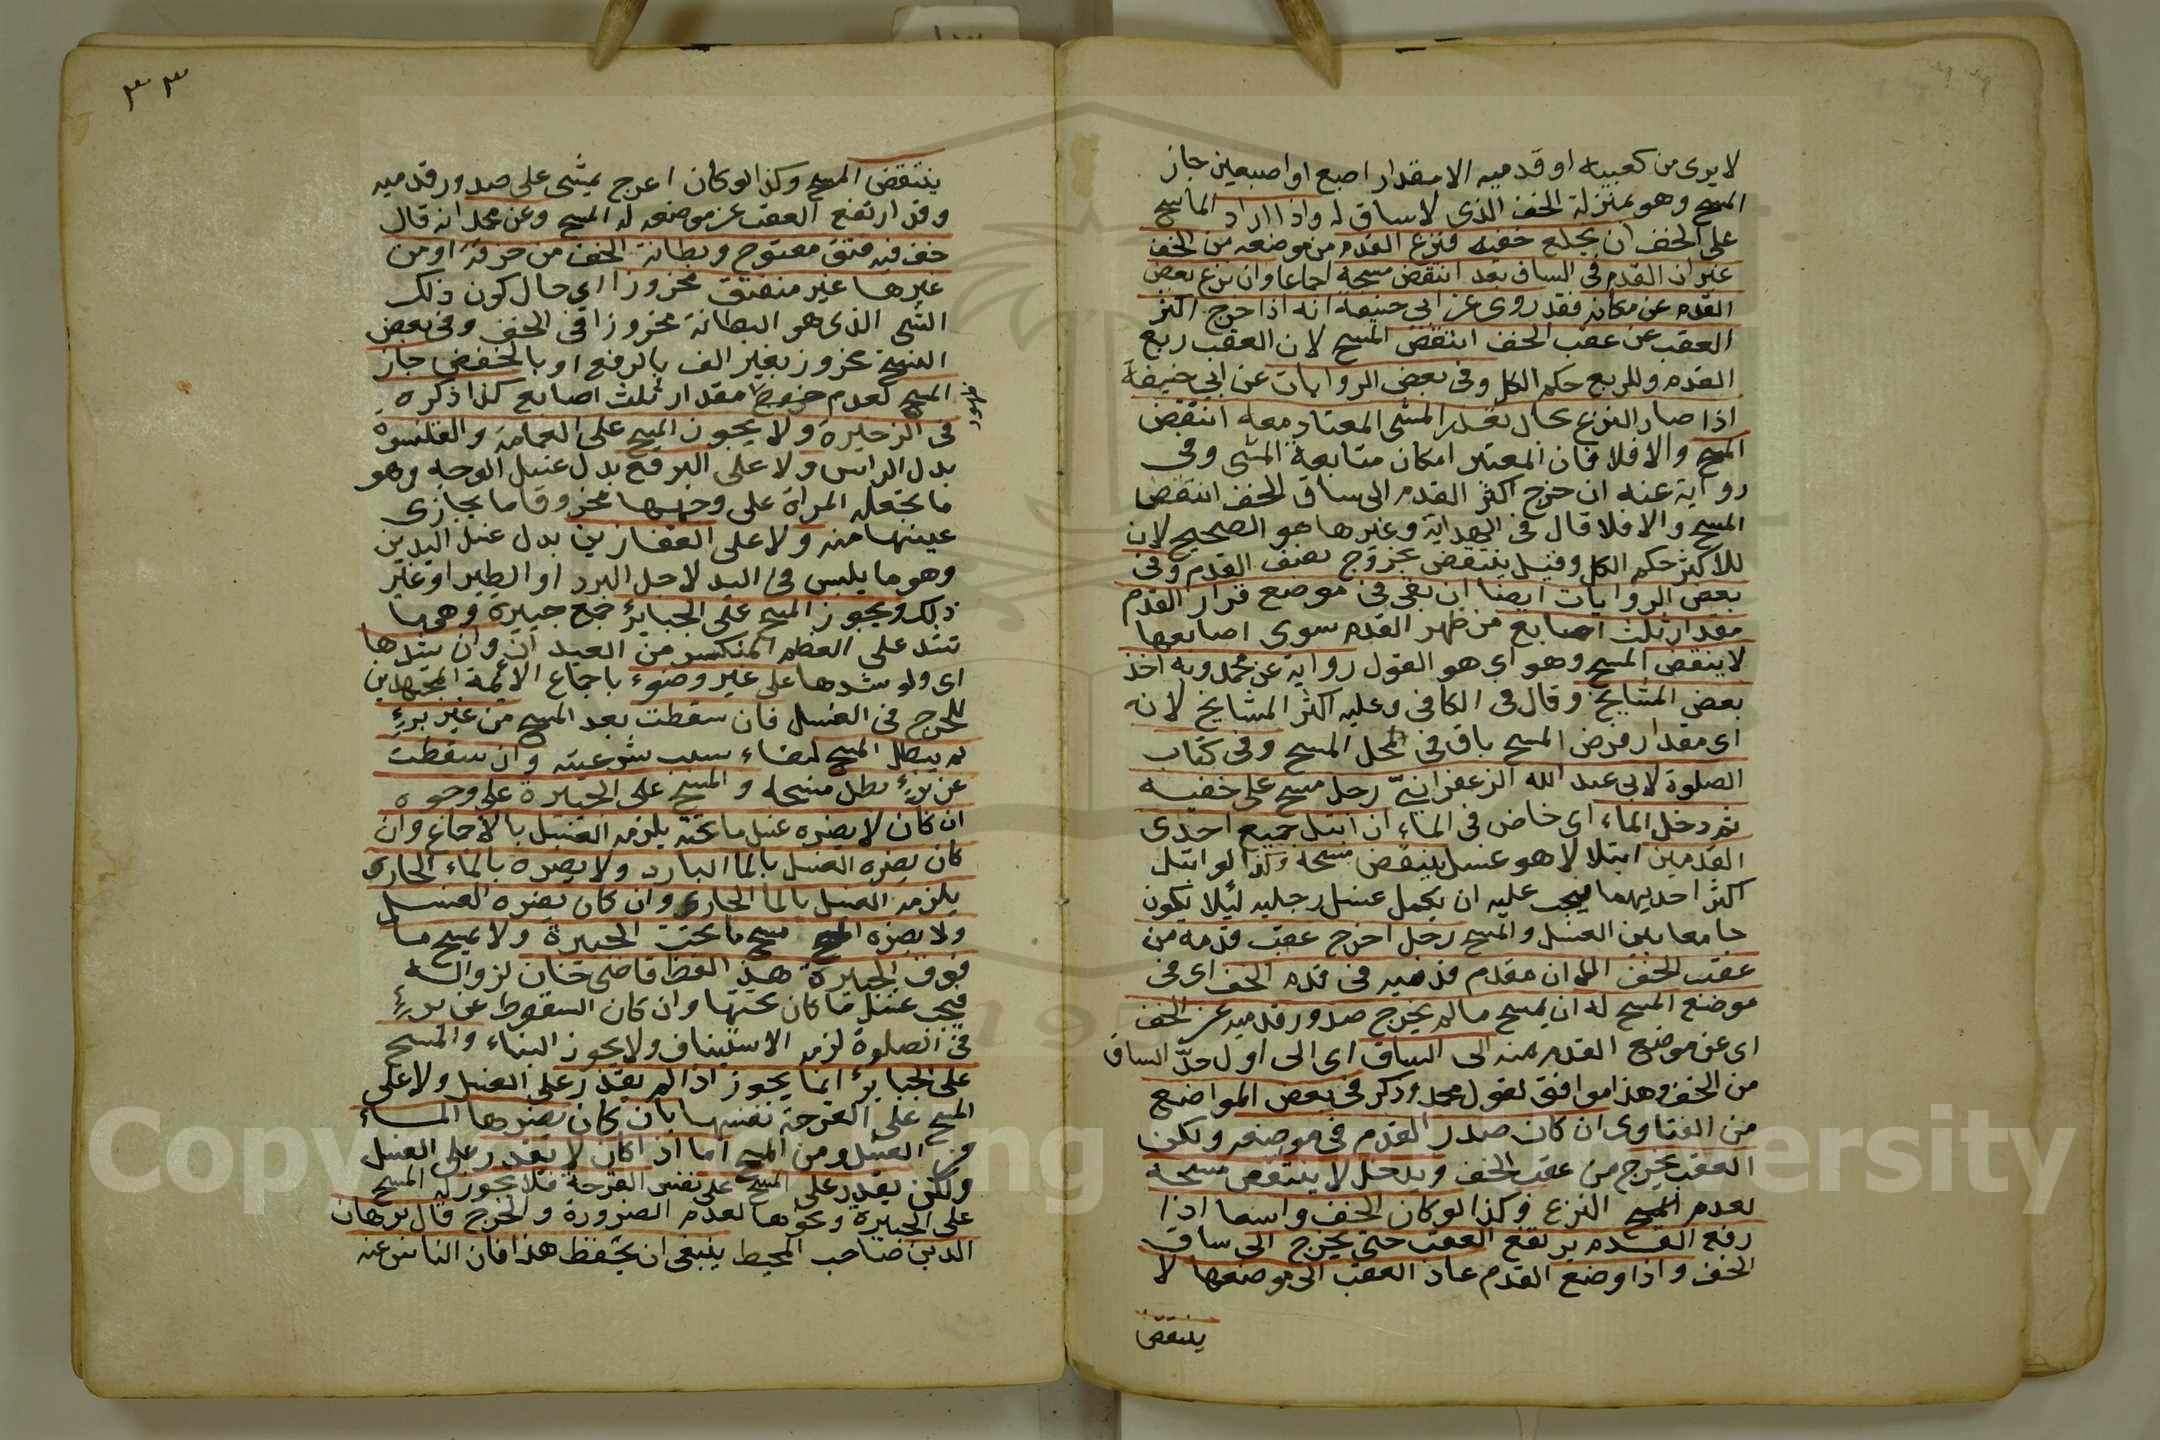 لا يرى من كعبيه او قدميه الا مقدار اصبع او اصبعين جاز
المسح وهو بمنزلة الخف الذى لا ساق له واذا اراد الماسح
على الخف ان يخلع خفيه فنزع القدم من موضعه من الخف
غير ان القدم فى الساق بعد انتقض مسحه اجماعا وان نزع بعض
القدم عن مكانه فقد روى عن ابى حنيفة انه اذا خرج اكثر
العقب عن عقب الخف انتقض المسح لان العقب ربع
القدم وللربع حكم الكل وفى بعض الروايات عن ابي حنيفة
اذا صار النزع بحال تعذر المشى المعتاد معه انتقض
المسح والا فلا فان المعتبر امكان متابعة المشى وفي
رواية عنه ان خرج اكثر القدم الى ساق الخف انتقض
المسح والا فلا قال فى الهداية وغيرها هو الصحيح لان
للاكثر حكم الكل وقيل ينتقض بخروج نصف القدم وفى
بعض الروايات ايضا ان بقى فى موضع قرار القدم
مقدار ثلث اصابع من ظهر القدم سوى اصابعها
لا ينقض المسح وهو اى هو القول رواية عن محمد وبه اخذ
بعض المشايخ وقال فى الكافى وعليه اكثر المشايخ لانه
اى مقدار فرض المسح باق فى المحل المسح وفى كتاب
الصلوة لابى عبد الله الزعفرانىّ رجل مسح على خفيه
ثم دخل الماء اى خاض فى الماء ان ابتل جميع احدى
القدمين ابتلالا هو غسل ينقض مسحه وكذا لو ابتل
اكثر احديهما يجب عليه ان يكمل غسل رجليه لئلا يكون
جامعا بين الغسل والمسح رجل اخرج عقب قدمه من
عقب الخف الا ان مقدم قدميه فى قدم الخف اى فى
موضع المسح له ان يمسح مالم يخرج صدور قدميه عن الخف
اى عن موضع القدم منه الى الساق اى الى اول حدّ الساق
من الخف وهذا موافق لقول محمد وذكر فى بعض المواضع
من الفتاوى ان كان صدر القدم فى موضعه ولكن
العقب يخرج من عقب الخف ويدخل لا ينتقض مسحه
لعدم النزع وكذا لو كان الخف واسعا اذا
رفع القدم يرتفع العقب حتى يخرج الى ساق
الخف واذا وضع القدم عاد العقب الى موضعها لا
ينتقض
٣٣
ينتقض المسح وكذا لو كان اعرج يمشى على صدور قدميه
وقد ارتفع العقب عن موضعه له المسح وعن محمد انه قال
خف فيه فتق مفتوح وبطانة الخف من خرقة او من
غيرها غير منفتق مخروزا اى حال كون ذلك
الشى الذى هو البطانة مخروزا فى الخف وفى بعض
النسخ مخروز بغير الف بالرفع او بالخفض جاز
المسح لعدم خروج مقدار ثلث اصابع كذا ذكره
فى الذخيرة ولا يجوز المسح على العمامة والقلنسوة
بدل الراس ولا على البرقع بدل غسل الوجه وهو
ما تجعله المراة على وجهها مخروقا ما يحاذى
عينها منه ولا على القفازين بدل غسل اليدين
وهو ما يلبس فى اليد لاجل البرد او الطير او غير
ذلك ويجوز المسح على الجبائر جمع جبيرة وهى ما
تشد على العظم المنكسر من العيدان وان يشدها
اى ولو شدها على غير وضوء باجماع الائمة المجتهدين
للحرج فى الغسل فان سقطت بعد المسح من غير برء
لم يبطل المسح لبقاء سبب شرعيته وان سقطت
عن برء بطل مسحه والمسح على الجبيرة على وجوه
ان كان لا يضره غسل ما تحته يلزمه الغسل بالاجماع وان
كان يضره الغسل بالما البارد ولا يضره بالماء الحار
يلزمه الغسل بالما الحار وان كان يضره الغسل
ولا يضره المسح مسح ما تحت الجبيرة ولا يمسح ما
فوق الجبيرة هذا لفظ قاضى خان لزواله
فيجب غسل ما كان تحتها وان كان السقوط عن برء
فى الصلوة لزم الاستيناف ولا يجوز البناء والمسح
على الجبائر انما يجوز اذا لم يقدر على الغسل ولا على
المسح على القرحة نفسها بان كان يضرها الماء
من الغسل ومن المسح اما اذا كان لا يقدر على الغسل
ولكن يقدر على المسح على نفس القرحة فلا يجوز له المسح
على الجبيرة ونحوها لعدم الضرورة والحرج قال برهان
الدين صاحب المحيط ينبغى ان يحفظ هذا فان الناس عنه
Copy King University
195